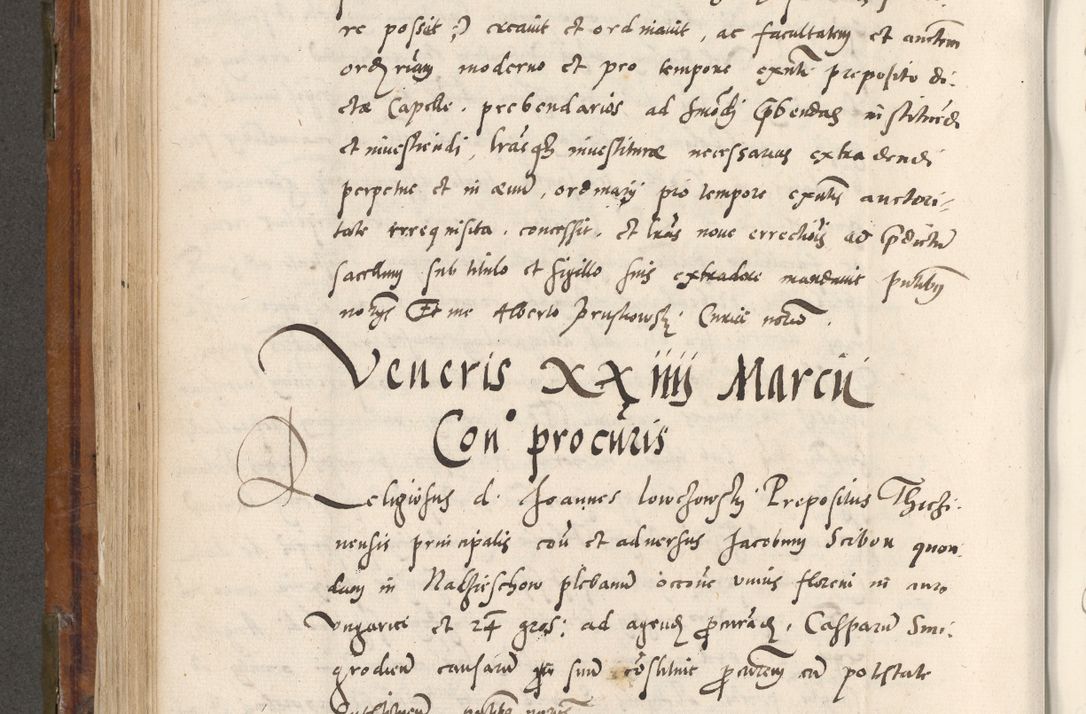 re possit ;) creavit et ordinavit, ac facultatem et auctem
ordriam moderno et pro tempore exnti preposito di-
ctæ Capellæ. prebendarios ad hmoi prebendas instituendi
et investiendi, lrasque investituræ necessarias extradendi
perpetue et in ævum, ordinarii pro tempore exntis auctori-
tate irrequisita. concessit. Et lras nove errectionis ad predictum
sacellum sub titulo et sigillo suis extradere mandavit pntibus
Et me Alberto Curie notario.
Veneris XXIIII Marcii
Con° procuris
Religiosus d. Joannes Lowczowsky Prepositus Thichi-
nensis principalis con et adversus Jacobum Scibon quon-
dam in plebanum occone unius floreni in auro
Ungarici et 24 gros; ad agend procurand, Casparum Smi-
grodium causarum suum constituit procurem cum potstate